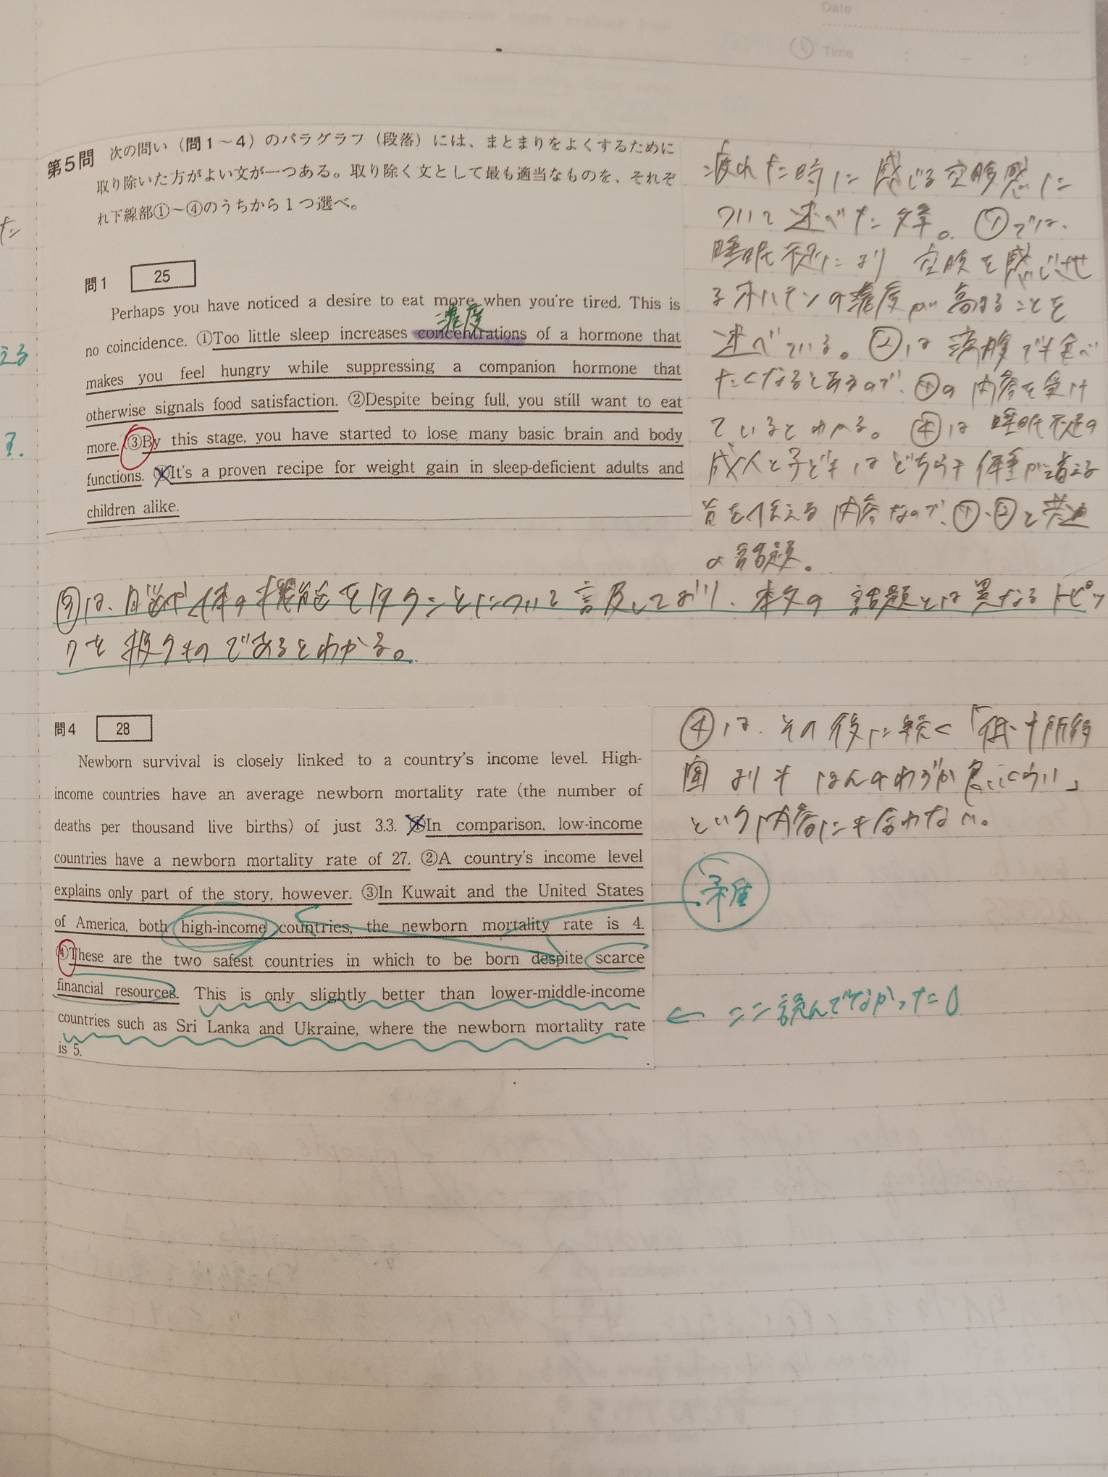 Date
Time
第5問 次の問い（問1～4）のパラグラフ（段落）には、まとまりをよくするために
取り除いた方がよい文が一つある。取り除く文として最も適当なものを、それぞ
れ下線部①～④のうちから1つ選べ。
問1 25
Perhaps you have noticed a desire to eat more when you're tired. This is
濃度
no coincidence. ①Too little sleep increases concentrations of a hormone that
makes you feel hungry while suppressing a companion hormone that
otherwise signals food satisfaction. ②Despite being full, you still want to eat
more. ③By this stage, you have started to lose many basic brain and body
functions. ④It's a proven recipe for weight gain in sleep-deficient adults and
children alike.
疲れた時に感じる空腹感に
ついて述べた文章。①では、
睡眠不足により空腹を感じさせ
るホルモンの濃度が高まることを
述べている。②は満腹でも食べ
たくなるとあるので、①の内容を受け
ているとわかる。④は睡眠不足の
成人と子どもはどちらも体重が増える
旨を伝える内容なので、①・②と共通
の話題。
③は、脳や体の機能を失うことについて言及しており、本文の話題とは異なるトピッ
クを扱うものであるとわかる。
問4 28
Newborn survival is closely linked to a country's income level. High-
income countries have an average newborn mortality rate (the number of
deaths per thousand live births) of just 3.3. ①In comparison, low-income
countries have a newborn mortality rate of 27. ②A country's income level
explains only part of the story, however. ③In Kuwait and the United States
of America, both high-income countries, the newborn mortality rate is 4.
④These are the two safest countries in which to be born despite scarce
financial resources. This is only slightly better than lower-middle-income
countries such as Sri Lanka and Ukraine, where the newborn mortality rate
is 5.
④は、その後に続く「低中所得
国よりもほんのわずか良いくらい」
という内容にも合わない。
矛盾
← ここ読んでなかった
える
た
す。